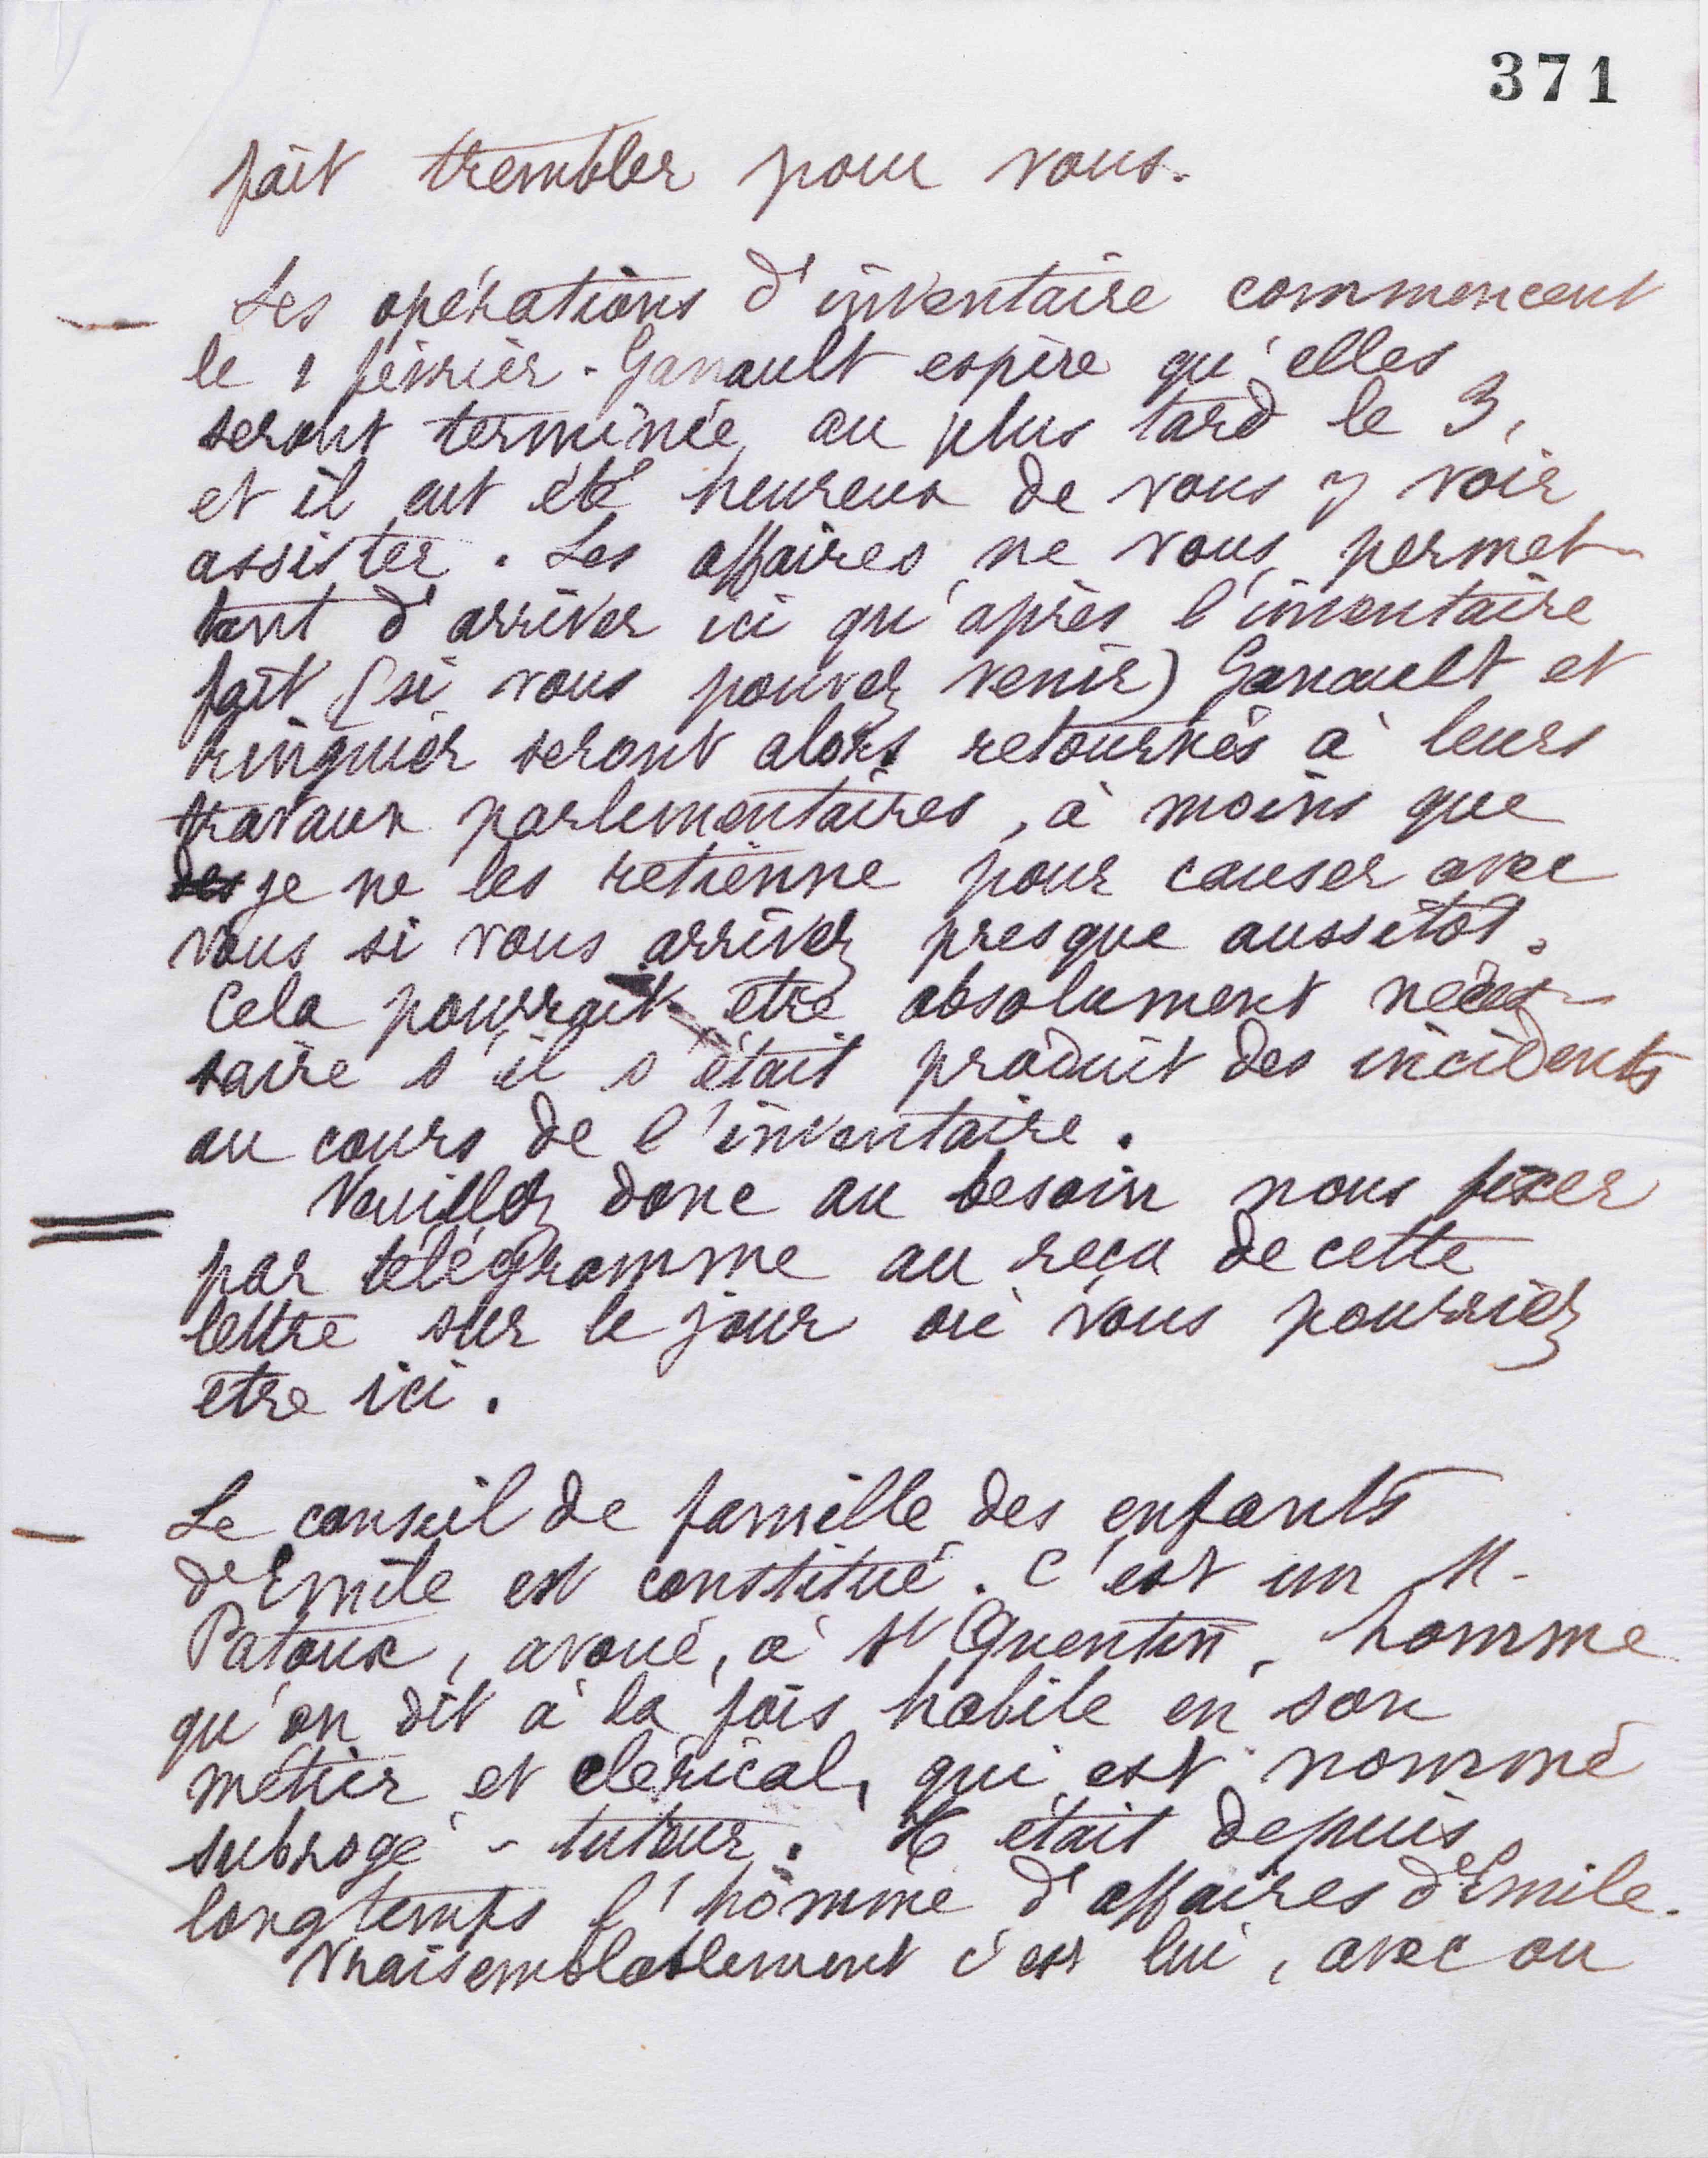 371
fait trembler pour vous.
Les opérations d'inventaire commencent
le 1 février. Ganault espère qu'elles
seront terminée au plus tard le 3,
et il eut été heureux de vous y voir
assister. Les affaires ne vous permet-
tant d'arriver ici qu'après l'inventaire
fait (si vous pouvez venir) Ganault et
Ringuier seront alors retournés à leurs
travaux parlementaires, à moins que
des je ne les retienne pour causer avec
vous si vous arrivez presque aussitôt.
Cela pourrait etre absolument néces-
saire s'il s'était produit des incidents
au cours de l'inventaire.
Veuillez donc au besoin nous fixer
par télégramme au reçu de cette
lettre sur le jour où vous pourriez
etre ici.
Le conseil de famille des enfants
d'Emile est constitué. C'est un M.
Patoux, avoué, à St Quentin, homme
qu'on dit à la fois habile en son
métier et clérical, qui est nommé
subrogé-tuteur. Il était depuis
longtemps l'homme d'affaires d'Emile.
Vraisemblablement c'est lui, avec ou